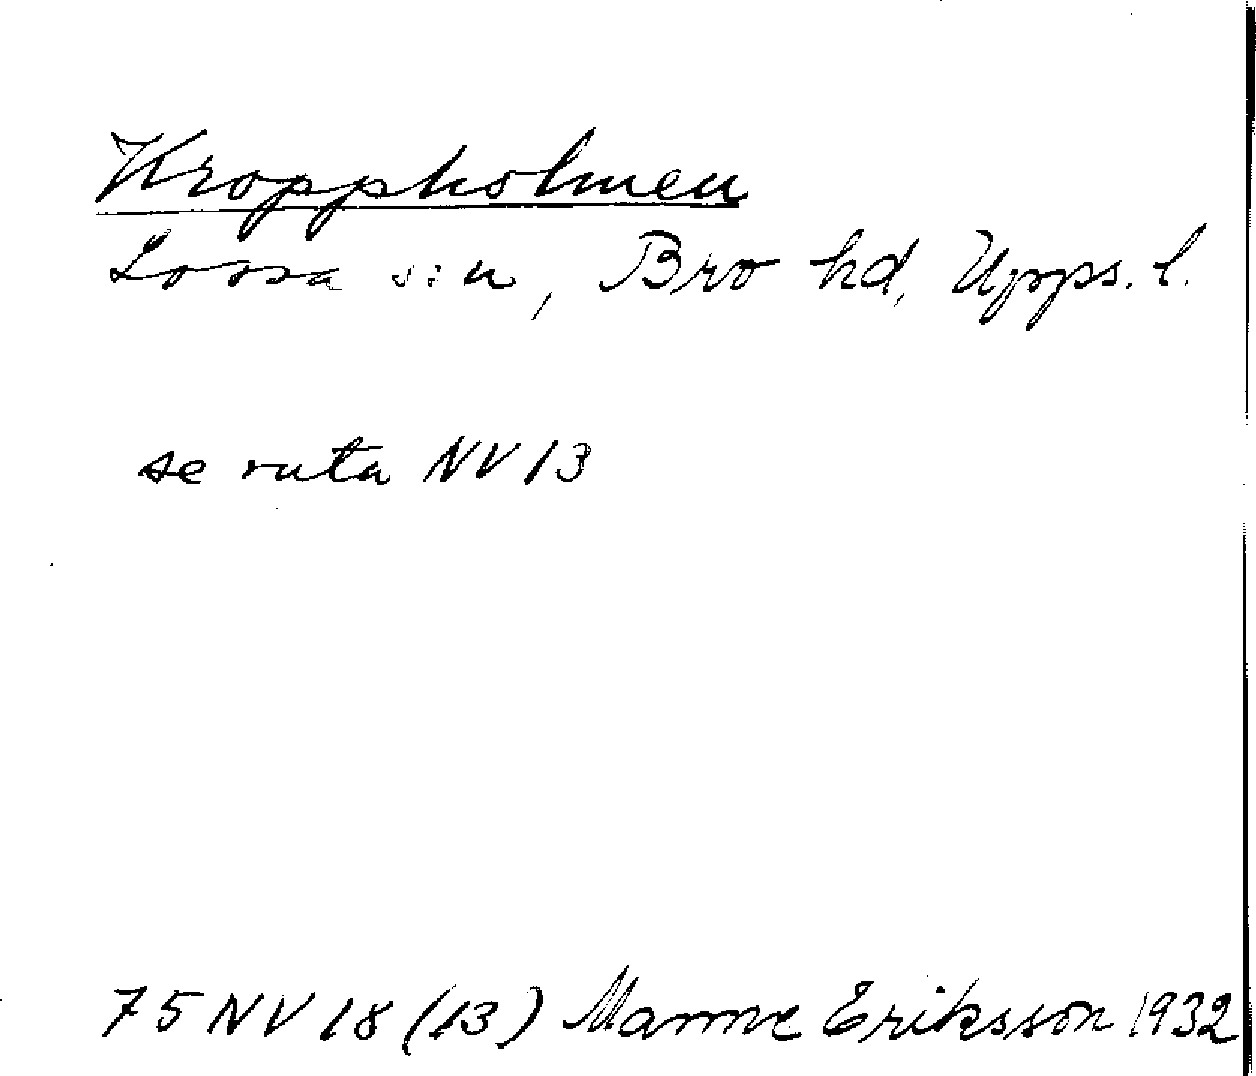 Kroppholmen
Lossa s:n, Bro hd, Upps. l.
se ruta NV 13
75 NV 18 (13) Manne Eriksson 1932